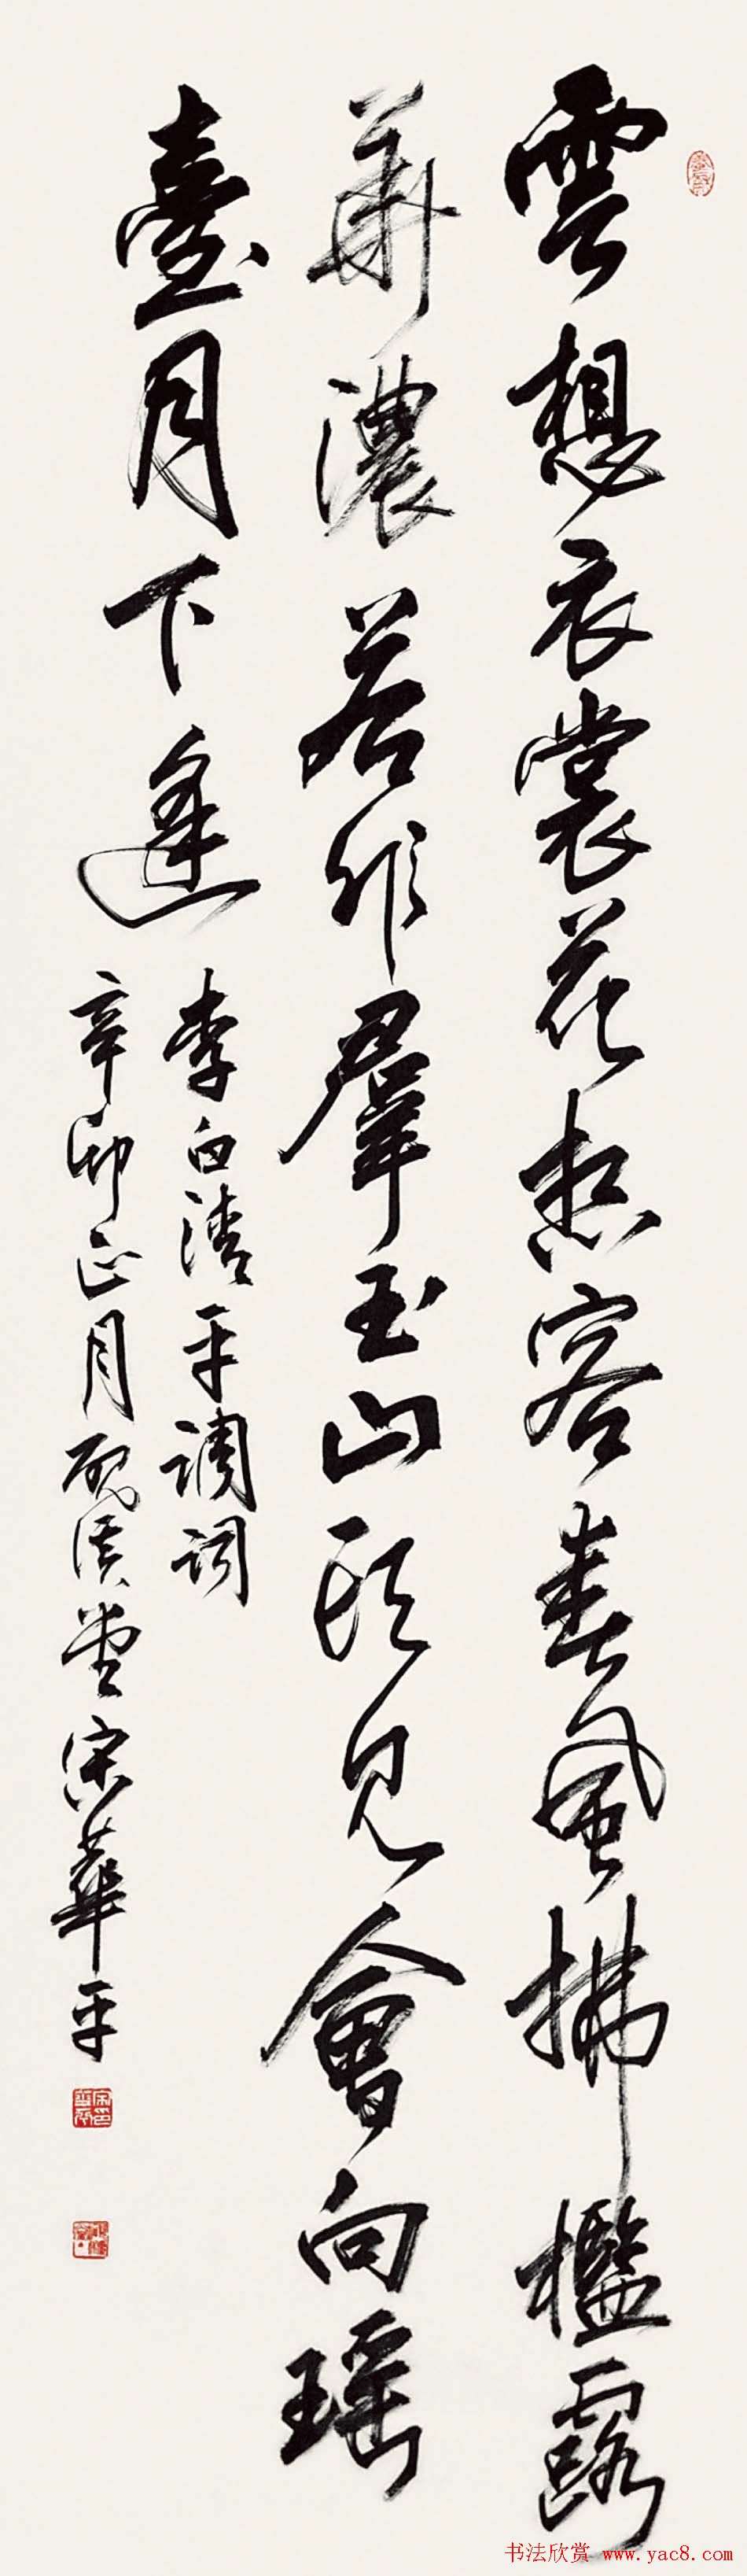 雲想衣裳花想容春風拂檻露
華濃若非羣玉山頭見會向瑶
臺月下逢
李白清平調詞
辛卯正月硯堂宋華平
书法欣赏 www.yac8.com